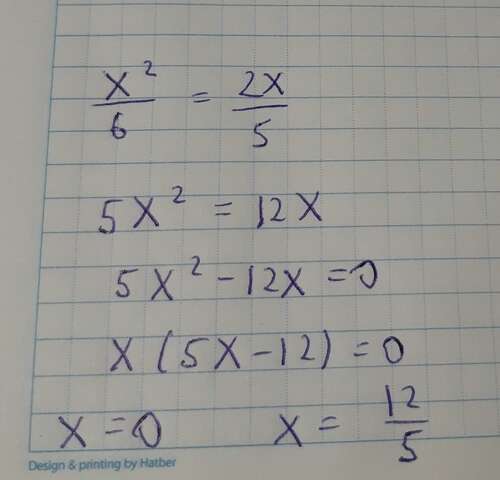 x²/6 = 2x/5
5x² = 12x
5x² - 12x = 0
x(5x - 12) = 0
x = 0    x = 12/5
Design & printing by Hatber